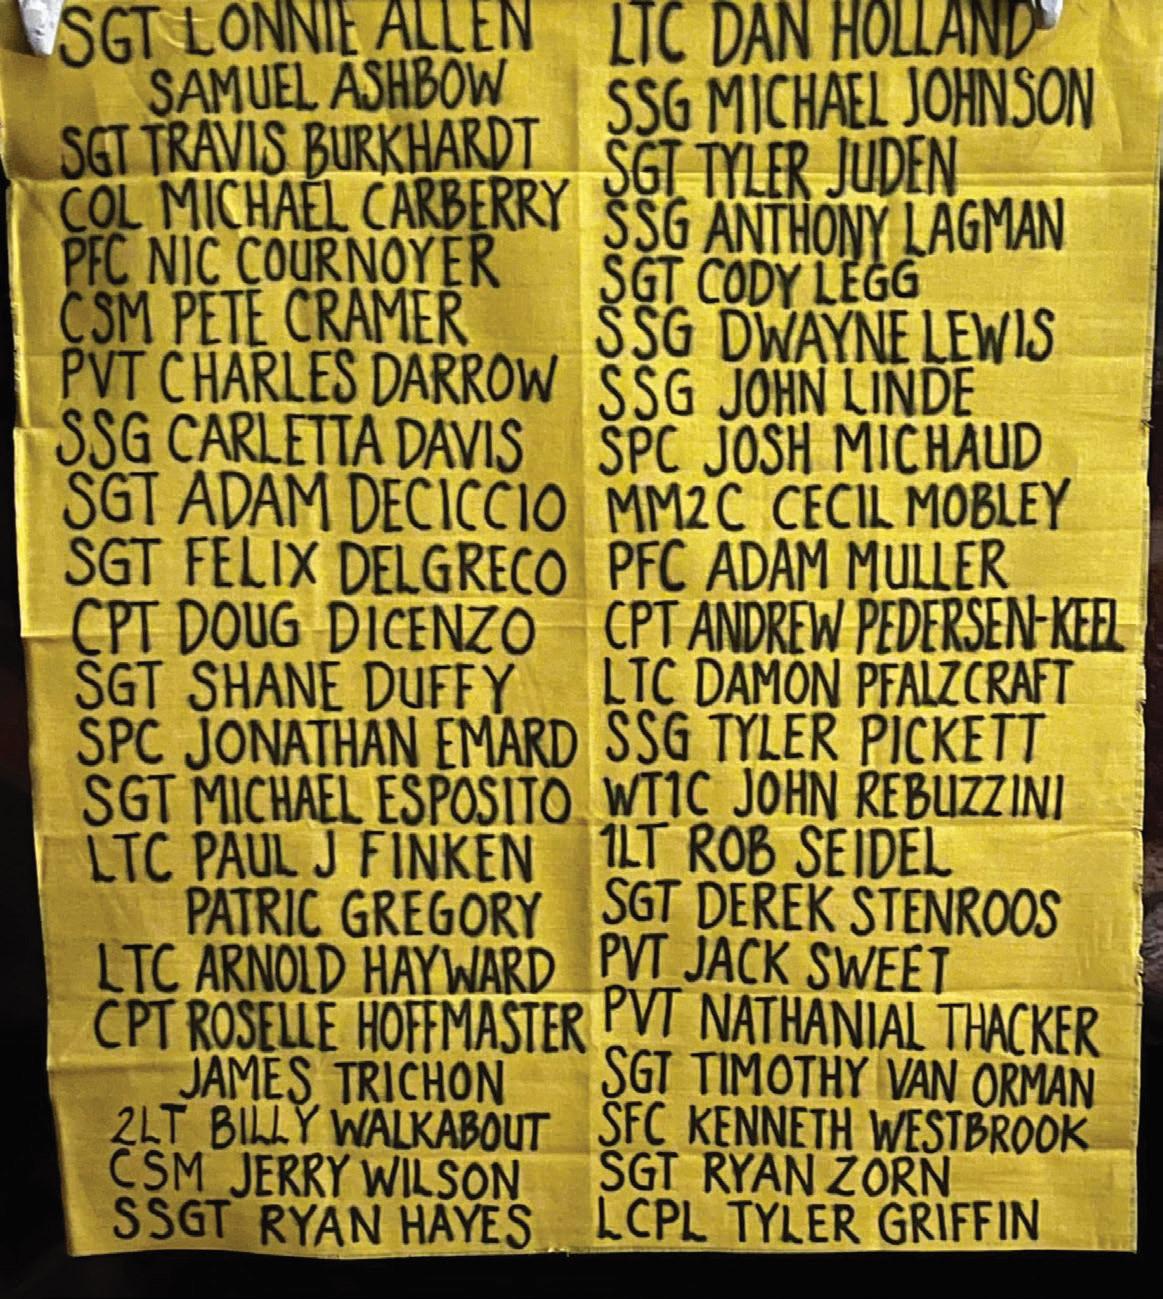 SGT LONNIE ALLEN
SAMUEL ASHBOW
SGT TRAVIS BURKHARDT
COL MICHAEL CARBERRY
PFC NIC COURNOYER
CSM PETE CRAMER
PVT CHARLES DARROW
SSG CARLETTA DAVIS
SGT ADAM DECICCIO
SGT FELIX DELGRECO
CPT DOUG DICENZO
SGT SHANE DUFFY
SPC JONATHAN EMARD
SGT MICHAEL ESPOSITO
LTC PAUL J FINKEN
PATRIC GREGORY
LTC ARNOLD HAYWARD
CPT ROSELLE HOFFMASTER
JAMES TRICHON
2LT BILLY WALKABOUT
CSM JERRY WILSON
SSGT RYAN HAYES
LTC DAN HOLLAND
SSG MICHAEL JOHNSON
SGT TYLER JUDEN
SSG ANTHONY LAGMAN
SGT CODY LEGG
SSG DWAYNE LEWIS
SSG JOHN LINDE
SPC JOSH MICHAUD
MM2C CECIL MOBLEY
PFC ADAM MULLER
CPT ANDREW PEDERSEN-KEEL
LTC DAMON PFALZCRAFT
SSG TYLER PICKETT
WT1C JOHN REBUZZINI
1LT ROB SEIDEL
SGT DEREK STENROOS
PVT JACK SWEET
PVT NATHANIAL THACKER
SGT TIMOTHY VAN ORMAN
SFC KENNETH WESTBROOK
SGT RYAN ZORN
LCPL TYLER GRIFFIN